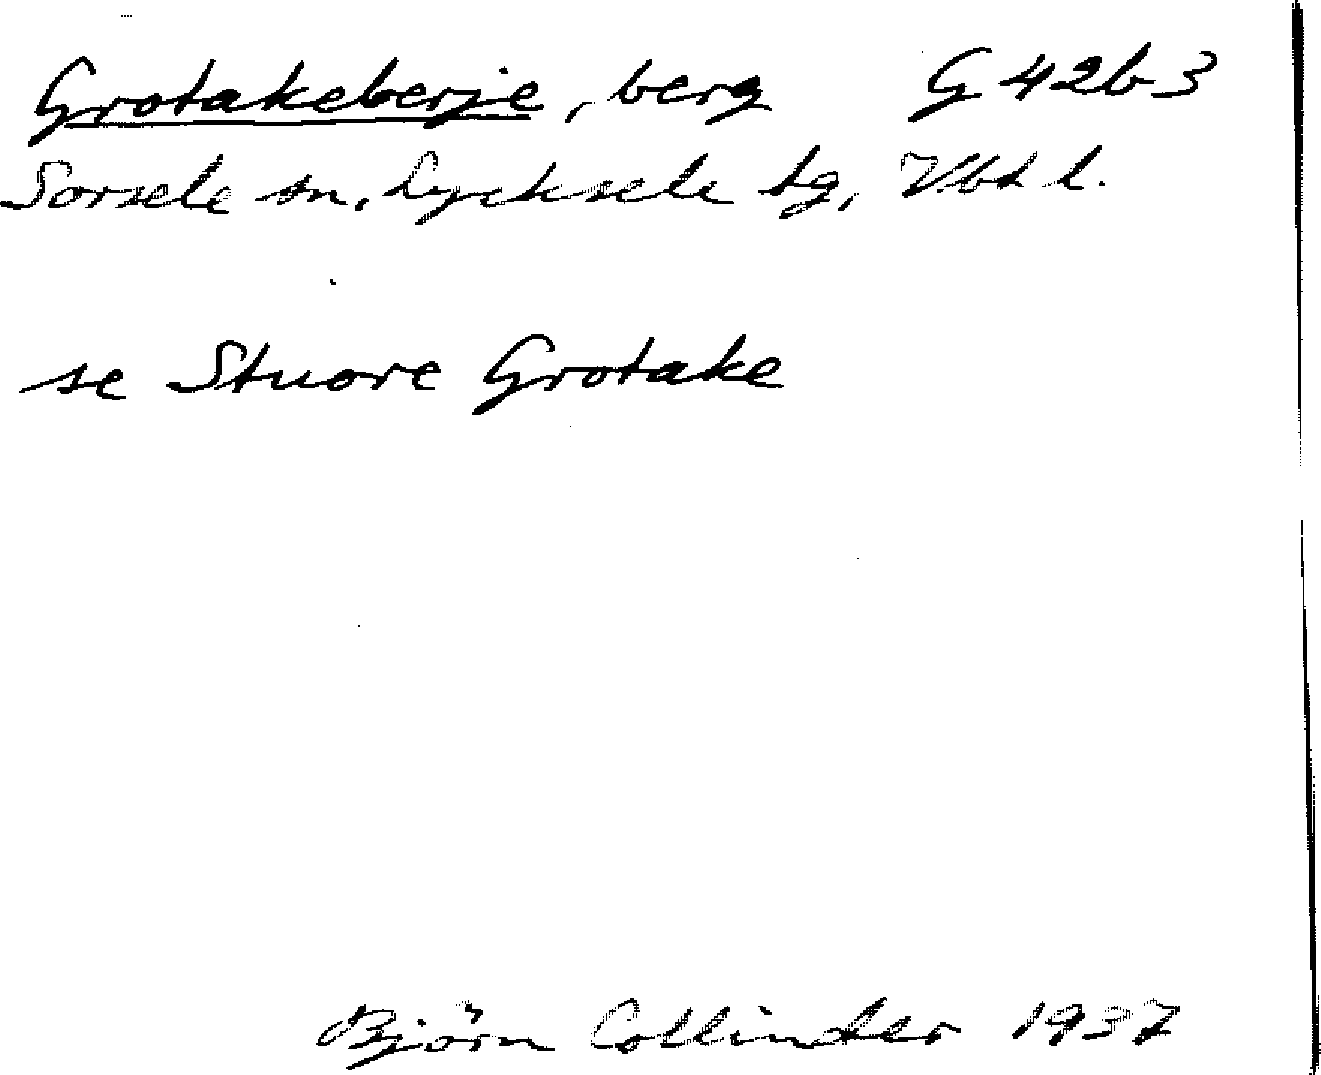 Grotakeberje, berg G 42b3
Sorsele sn, Lycksele tg, Vbt l.
se Stuore Grotake
Björn Collinder 1937